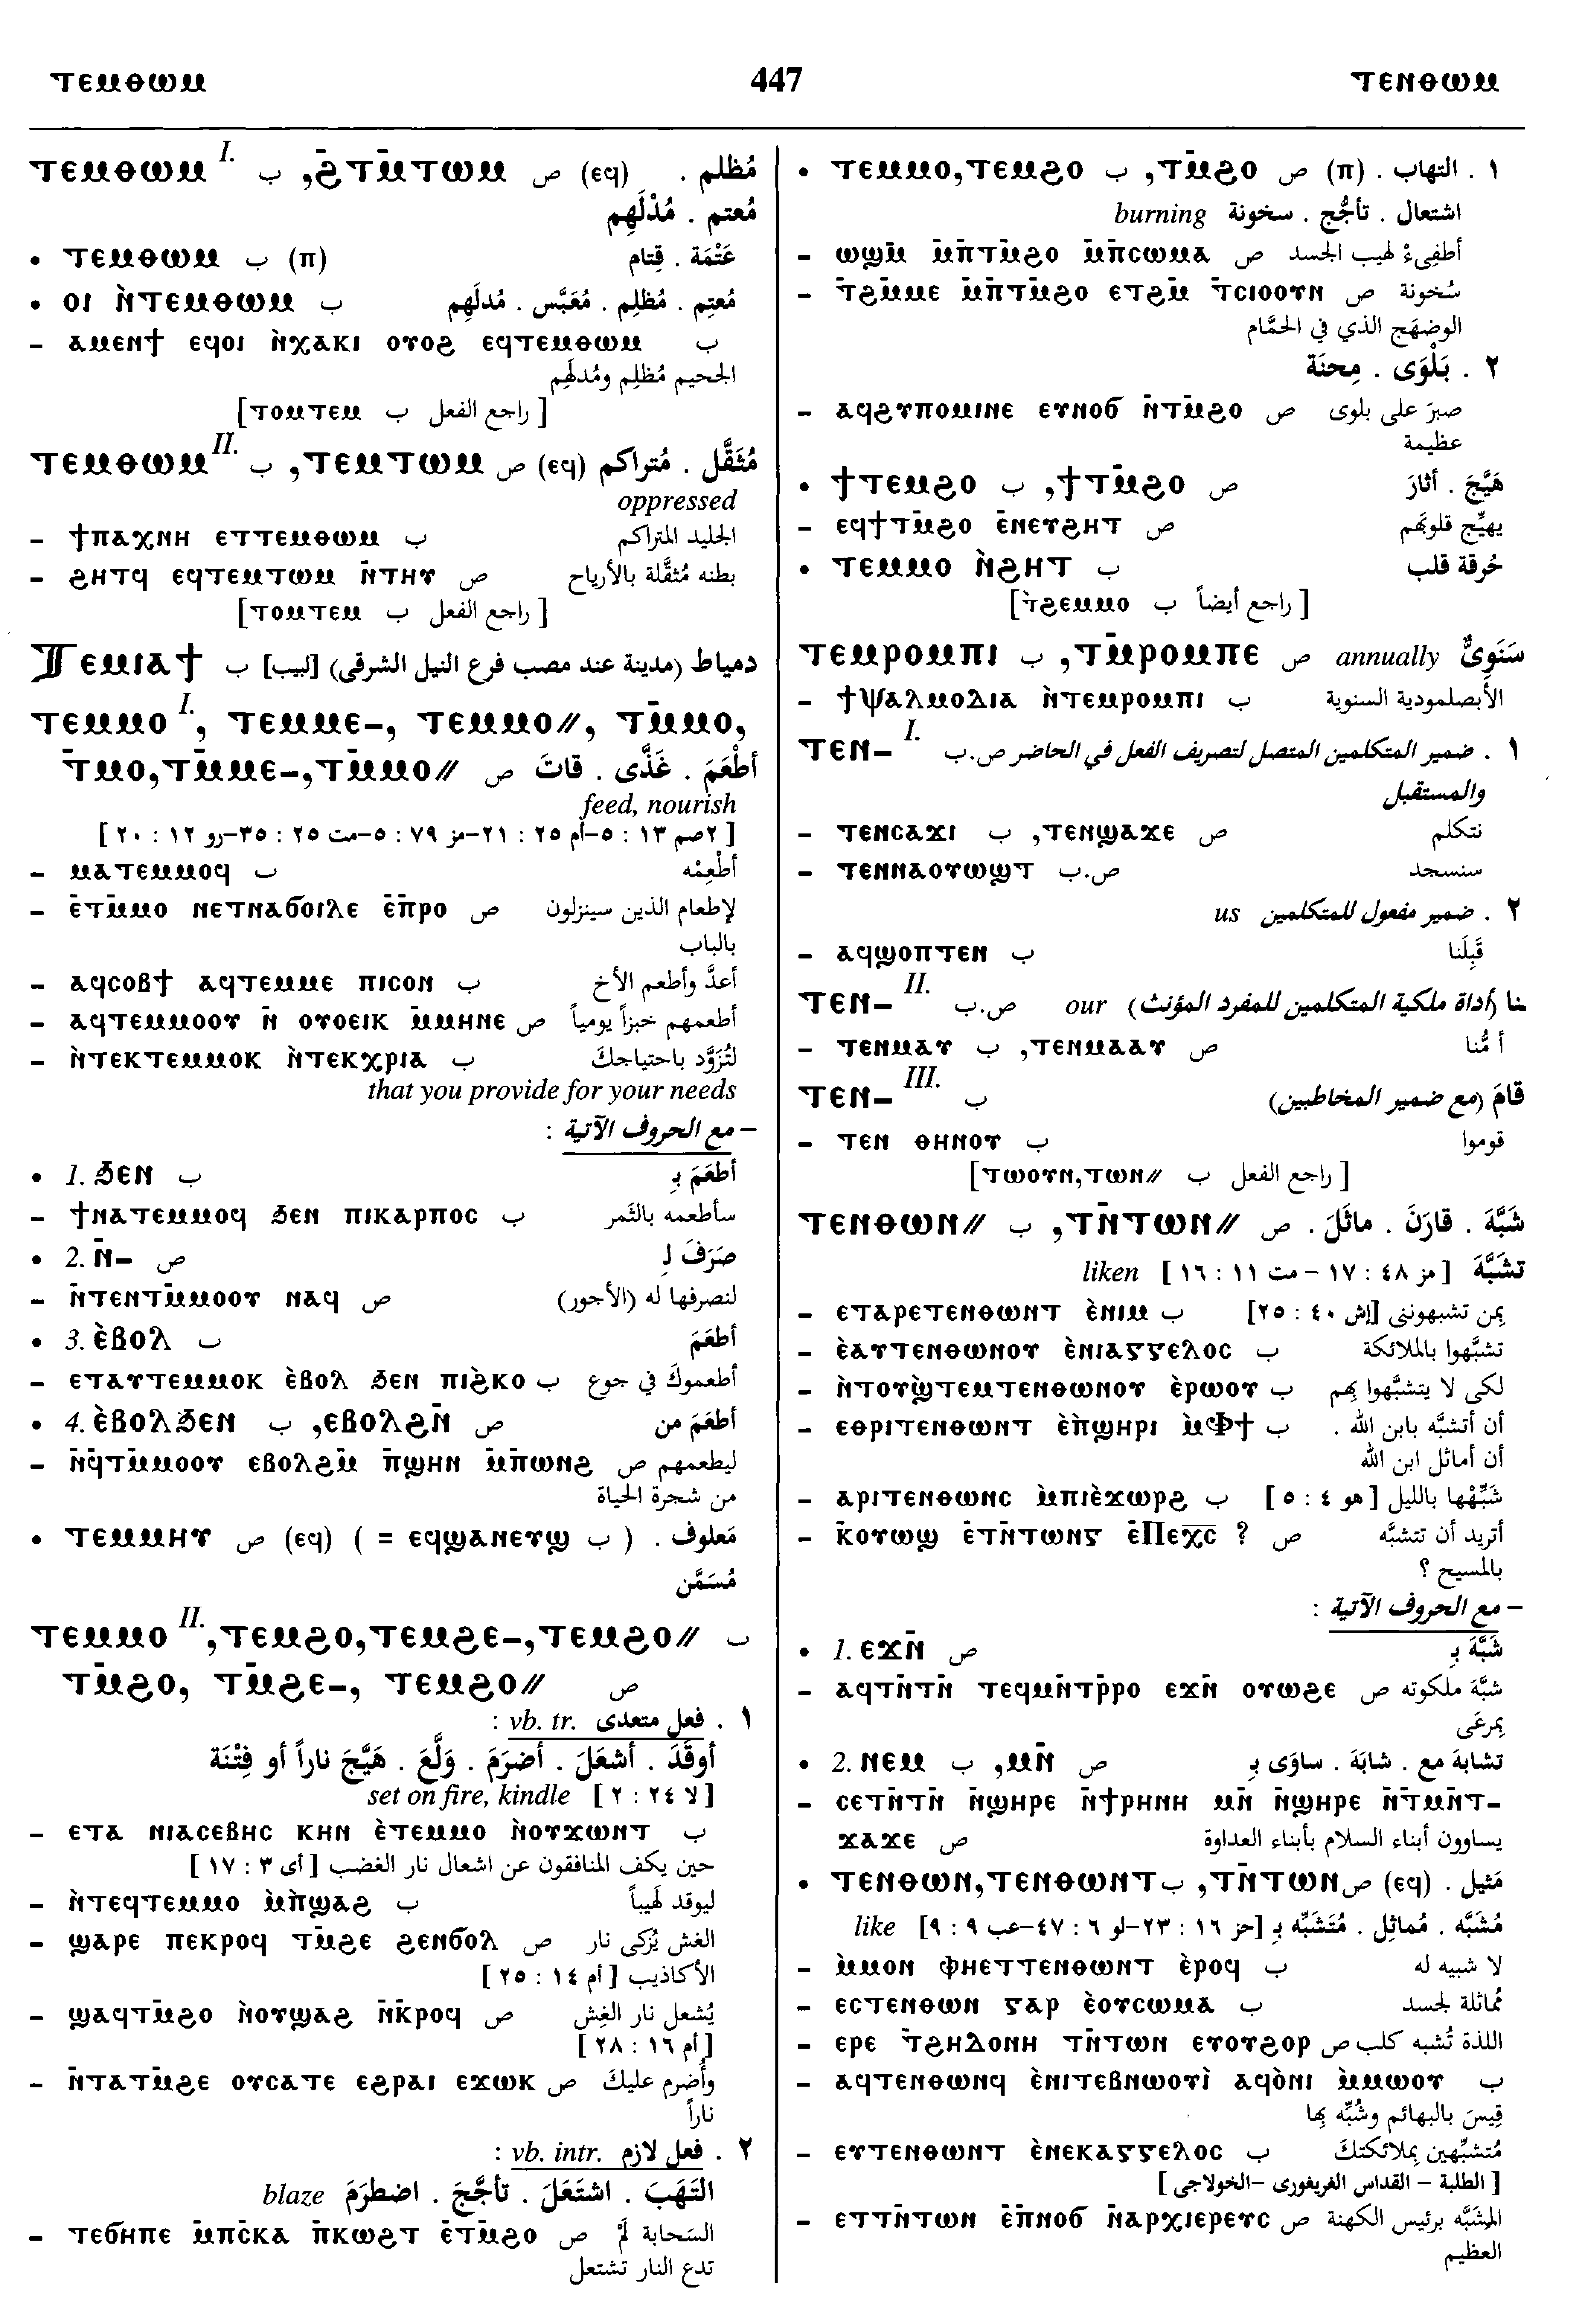 ⲧⲉⲙⲑⲱⲙ 447 ⲧⲉⲛⲑⲱⲙ
ⲧⲉⲙⲑⲱⲙ I. ب ,ϩⲧⲙ̄ⲧⲱⲙ ص (ⲉϥ) مُظلم .
مُعتم . مُدْلَهِم
• ⲧⲉⲙⲑⲱⲙ ب (ⲡ) عَتْمَة . قِتام
• ⲟⲓ ⲛ̀ⲧⲉⲙⲑⲱⲙ ب مُعتِم . مُظلِم . مُعَبَّس . مُدلَهِم
– ⲁⲙⲉⲛϯ ⲉϥⲟⲓ ⲛ̀ⲭⲁⲕⲓ ⲟⲩⲟϩ ⲉϥⲧⲉⲙⲑⲱⲙ ب
الجحيم مُظلِم ومُدلَهِم
[ⲧⲟⲙⲧⲉⲙ ب راجع الفعل ]
ⲧⲉⲙⲑⲱⲙ II. ب ,ⲧⲉⲙⲧⲱⲙ ص (ⲉϥ) مُثَقَّل . مُتراكم
oppressed
– ϯⲡⲁⲭⲛⲏ ⲉⲧⲧⲉⲙⲑⲱⲙ ب الجليد المتراكم
– ϩⲏⲧϥ ⲉϥⲧⲉⲙⲧⲱⲙ ⲛ̄ⲧⲏⲩ ص بطنه مُثقَّلة بالأرياح
[ⲧⲟⲙⲧⲉⲙ ب راجع الفعل ]
Ⲧⲉⲙⲓⲁϯ ب [لبيب] (مدينة عند مصب فرع النيل الشرقى) دمياط
ⲧⲉⲙⲙⲟ I., ⲧⲉⲙⲙⲉ–, ⲧⲉⲙⲙⲟ//, ⲧⲙ̄ⲙⲟ,
ⲧ̄ⲙⲟ,ⲧⲙ̄ⲙⲉ–,ⲧⲙ̄ⲙⲟ// ص أطْعَمَ . غَذَّى . قاتَ
feed, nourish
[ ٢صم ١٣ : ٥–أم ٢٥ : ٢١–مز ٧٩ : ٥–مت ٢٥ : ٣٥–رو ١٢ : ٢٠ ]
– ⲙⲁⲧⲉⲙⲙⲟϥ ب أطْعِمْه
– ⲉ̄ⲧⲙ̄ⲙⲟ ⲛⲉⲧⲛⲁϭⲟⲓⲗⲉ ⲉ̄ⲡ̄ⲣⲟ ص لإطعام الذين سينزلون
بالباب
– ⲁϥⲥⲟⲃϯ ⲁϥⲧⲉⲙⲙⲉ ⲡⲓⲥⲟⲛ ب أعدَّ وأطعم الأخ
– ⲁϥⲧⲉⲙⲙⲟⲟⲩ ⲛ̄ ⲟⲩⲟⲉⲓⲕ ⲙ̄ⲙⲏⲛⲉ ص أطعمهم خبزاً يومياً
– ⲛ̀ⲧⲉⲕⲧⲉⲙⲙⲟⲕ ⲛ̀ⲧⲉⲕⲭⲣⲓⲁ ب لتُزَوَّد باحتياجك
that you provide for your needs
– مع الحروف الآتية :
• 1. ϧⲉⲛ ب أطعَمَ بِـ
– ϯⲛⲁⲧⲉⲙⲙⲟϥ ϧⲉⲛ ⲡⲓⲕⲁⲣⲡⲟⲥ ب سأطعمه بالثَمر
• 2. ⲛ̄– ص صَرَفَ لـِ
– ⲛ̄ⲧⲉⲛⲧⲙ̄ⲙⲟⲟⲩ ⲛⲁϥ ص لنصرفها له (الأجور)
• 3. ⲉ̀ⲃⲟⲗ ب أطعَمَ
– ⲉⲧⲁⲩⲧⲉⲙⲙⲟⲕ ⲉ̀ⲃⲟⲗ ϧⲉⲛ ⲡⲓϩ̀ⲕⲟ ب أطعموك في جوع
• 4. ⲉ̀ⲃⲟⲗϧⲉⲛ ب ,ⲉⲃⲟⲗϩⲛ̄ ص أطعَمَ من
– ⲛ̄ϥ̄ⲧⲙ̄ⲙⲟⲟⲩ ⲉⲃⲟⲗϩⲙ̄ ⲡ̄ϣⲏⲛ ⲙ̄ⲡ̄ⲱⲛϩ ص ليطعمهم
من شجرة الحياة
• ⲧⲉⲙⲙⲏⲩ ص (ⲉϥ) ( = ⲉϥϣⲁⲛⲉⲩϣ ب ) مَعلوف .
مُسَمَّن
ⲧⲉⲙⲙⲟ II.,ⲧⲉⲙϩⲟ,ⲧⲉⲙϩⲉ–,ⲧⲉⲙϩⲟ// ب
ⲧⲙ̄ϩⲟ, ⲧⲙ̄ϩⲉ–, ⲧⲉⲙϩⲟ// ص
١ . فعل متعدى vb. tr. :
أوقَدَ . أشعَلَ . أضرَمَ . وَلَّعَ . هَيَّجَ ناراً أو فِتْنَة
set on fire, kindle [ لا ٢٤ : ٢ ]
– ⲉⲧⲁ ⲛⲓⲁⲥⲉⲃⲏⲥ ⲕⲏⲛ ⲉ̀ⲧⲉⲙⲙⲟ ⲛ̀ⲟⲩϫⲱⲛⲧ ب
حين يكف المنافقون عن اشعال نار الغضب [ أى ٣ : ١٧ ]
– ⲛ̀ⲧⲉϥⲧⲉⲙⲙⲟ ⲙ̀ⲡ̀ϣⲁϩ ب ليوقد لهيباً
– ϣⲁⲣⲉ ⲡⲉⲕⲣⲟϥ ⲧⲙ̄ϩⲉ ϩⲉⲛϭⲟⲗ ص الغش يُزكى نار
الأكاذيب [ أم ١٤ : ٢٥ ]
– ϣⲁϥⲧⲙ̄ϩⲟ ⲛ̄ⲟⲩϣⲁϩ ⲛ̄ⲕ̄ⲣⲟϥ ص يُشعل نار الغِش
[ أم ١٦ : ٢٨ ]
– ⲛ̄ⲧⲁⲧⲙ̄ϩⲉ ⲟⲩⲥⲁⲧⲉ ⲉϩⲣⲁⲓ ⲉϫⲱⲕ ص وأُضرم عليك
ناراً
٢ . فعل لازم vb. intr. :
التَهَبَ . اشتَعَلَ . تأجَّجَ . اضطرَمَ blaze
– ⲧⲉϭⲏⲡⲉ ⲙ̄ⲡⲥ̄ⲕⲁ ⲡ̄ⲕⲱϩⲧ ⲉ̄ⲧⲙ̄ϩⲟ ص السَحابة لَمْ
تدع النار تشتعل
• ⲧⲉⲙⲙⲟ,ⲧⲉⲙϩⲟ ب ,ⲧⲙ̄ϩⲟ ص (ⲡ) ١ . التهاب .
اشتعال . تأجُّج . سخونة burning
– ⲱϣⲙ̄ ⲙ̄ⲡ̄ⲧⲙ̄ϩⲟ ⲙ̄ⲡⲥⲱⲙⲁ ص أطفِىءْ لهيب الجسد
– ⲧ̄ϩⲙ̄ⲙⲉ ⲙ̄ⲡ̄ⲧⲙ̄ϩⲟ ⲉⲧϩⲙ̄ ⲧ̄ⲥⲓⲟⲟⲩⲛ ص سُخونة
الوضهَج الذي في الحمَّام
٢ . بَلْوَى . مِحنَة
– ⲁϥϩⲩⲡⲟⲙⲓⲛⲉ ⲉⲩⲛⲟϭ ⲛ̄ⲧⲙ̄ϩⲟ ص صبرَ على بلوى
عظيمة
• ϯⲧⲉⲙϩⲟ ب ,ϯⲧⲙ̄ϩⲟ ص هَيَّجَ . أثارَ
– ⲉϥϯⲧⲙ̄ϩⲟ ⲉ̄ⲛⲉⲩϩⲏⲧ ص يهيّج قلوبَهم
• ⲧⲉⲙⲙⲟ ⲛ̀ϩⲏⲧ ب حُرقة قلب
[ⲧ̀ϩⲉⲙⲙⲟ ب راجع أيضاً ]
ⲧⲉⲙⲣⲟⲙⲡⲓ ب ,ⲧⲙ̄ⲣⲟⲙⲡⲉ ص annually سَنَوِىٌّ
– ϯⲯⲁⲗⲙⲟⲇⲓⲁ ⲛ̀ⲧⲉⲙⲣⲟⲙⲡⲓ ب الأبصلمودية السنوية
ⲧⲉⲛ– I. ص.ب ١ . ضمير المتكلمين المتصل لتصريف الفعل في الحاضر
والمستقبل
– ⲧⲉⲛⲥⲁϫⲓ ب ,ⲧⲉⲛϣⲁϫⲉ ص نتكلم
– ⲧⲉⲛⲛⲁⲟⲩⲱϣⲧ ص.ب سنسجد
٢ . ضمير مفعول للمتكلمين us
– ⲁϥϣⲟⲡⲧⲉⲛ ب قَبِلَنا
ⲧⲉⲛ– II. ص.ب our (أداة ملكية المتكلمين للمفرد المؤنث) ـنا
– ⲧⲉⲛⲙⲁⲩ ب ,ⲧⲉⲛⲙⲁⲁⲩ ص أمُّنا
ⲧⲉⲛ– III. ب قامَ (مع ضمير المخاطبين)
– ⲧⲉⲛ ⲑⲏⲛⲟⲩ ب قوموا
[ⲧⲱⲟⲩⲛ,ⲧⲱⲛ// ب راجع الفعل ]
ⲧⲉⲛⲑⲱⲛ// ب ,ⲧⲛ̄ⲧⲱⲛ// ص شَبَّهَ . قارَنَ . ماثَلَ .
تشَبَّهَ [ مز ٤٨ : ١٧ – مت ١١ : ١٦ ] liken
– ⲉⲧⲁⲣⲉⲧⲉⲛⲑⲱⲛⲧ ⲉ̀ⲛⲓⲙ ب بمن تشبهوننى [إش ٤٠ : ٢٥]
– ⲉ̀ⲁⲩⲧⲉⲛⲑⲱⲛⲟⲩ ⲉ̀ⲛⲓⲁⲅⲅⲉⲗⲟⲥ ب تشبَّهوا بالملائكة
– ⲛ̀ⲧⲟⲩϣ̀ⲧⲉⲙⲧⲉⲛⲑⲱⲛⲟⲩ ⲉ̀ⲣⲱⲟⲩ ب لكى لا يتشبَّهوا بهم
– ⲉⲑⲣⲓⲧⲉⲛⲑⲱⲛⲧ ⲉ̀ⲡ̀ϣⲏⲣⲓ ⲙ̀Ⲫϯ ب أن أتشبَّه بابن الله .
أن أماثل ابن الله
– ⲁⲣⲓⲧⲉⲛⲑⲱⲛⲥ ⲙ̀ⲡⲓⲉ̀ϫⲱⲣϩ ب شَبِّهْها بالليل [ هو ٤ : ٥ ]
– ⲕ̄ⲟⲩⲱϣ ⲉ̄ⲧⲛ̄ⲧⲱⲛⲅ ⲉ̄Ⲡⲉⲭ̅ⲥ̅ ? ص أتريد أن تتشبَّه
بالمسيح ؟
– مع الحروف الآتية :
• 1. ⲉϫⲛ̄ ص شَبَّهَ بِـ
– ⲁϥⲧⲛ̄ⲧⲛ̄ ⲧⲉϥⲙⲛ̄ⲧⲣ̄ⲣⲟ ⲉϫⲛ̄ ⲟⲩⲱϩⲉ ص شبَّهَ ملكوته
بمرعَى
• 2. ⲛⲉⲙ ب ,ⲙⲛ̄ ص تشابهَ مع . شابَهَ . ساوَى بِـ
– ⲥⲉⲧⲛ̄ⲧⲛ̄ ⲛ̄ϣⲏⲣⲉ ⲛ̄ϯⲣⲏⲛⲏ ⲙⲛ̄ ⲛ̄ϣⲏⲣⲉ ⲛ̄ⲧⲙⲛ̄ⲧ–
ϫⲁϫⲉ ص يساوون أبناء السلام بأبناء العداوة
• ⲧⲉⲛⲑⲱⲛ,ⲧⲉⲛⲑⲱⲛⲧ ب ,ⲧⲛ̄ⲧⲱⲛ ص (ⲉϥ) مَثيل .
مُشبَّه . مُماثِل . مُتَشبِّه بِـ [حز ١٦ : ٢٣–لو ٦ : ٤٧–عب ٩ : ٩] like
– ⲙ̀ⲙⲟⲛ ⲫⲏⲉⲧⲧⲉⲛⲑⲱⲛⲧ ⲉ̀ⲣⲟϥ ب لا شبيه له
– ⲉⲥⲧⲉⲛⲑⲱⲛ ⲅⲁⲣ ⲉ̀ⲟⲩⲥⲱⲙⲁ ب مُماثلة لجسد
– ⲉⲣⲉ ⲧ̄ϩⲏⲇⲟⲛⲏ ⲧⲛ̄ⲧⲱⲛ ⲉⲩⲟⲩϩⲟⲣ ص اللذة تُشبه كلب
– ⲁϥⲧⲉⲛⲑⲱⲛϥ ⲉ̀ⲛⲓⲧⲉⲃⲛⲱⲟⲩⲓ̀ ⲁϥⲟ̀ⲛⲓ ⲙ̀ⲙⲱⲟⲩ ب
قِيسَ بالبهائم وشُبِّه بها
– ⲉⲩⲧⲉⲛⲑⲱⲛⲧ ⲉ̀ⲛⲉⲕⲁⲅⲅⲉⲗⲟⲥ ب مُتشبِّهين بملائكتك
[ الطلبة – القداس الغريغورى –الخولاجى ]
– ⲉⲧⲧⲛ̄ⲧⲱⲛ ⲉ̄ⲡ̄ⲛⲟϭ ⲛ̄ⲁⲣⲭⲓⲉⲣⲉⲩⲥ ص المشبَّه برئيس الكهنة
العظيم